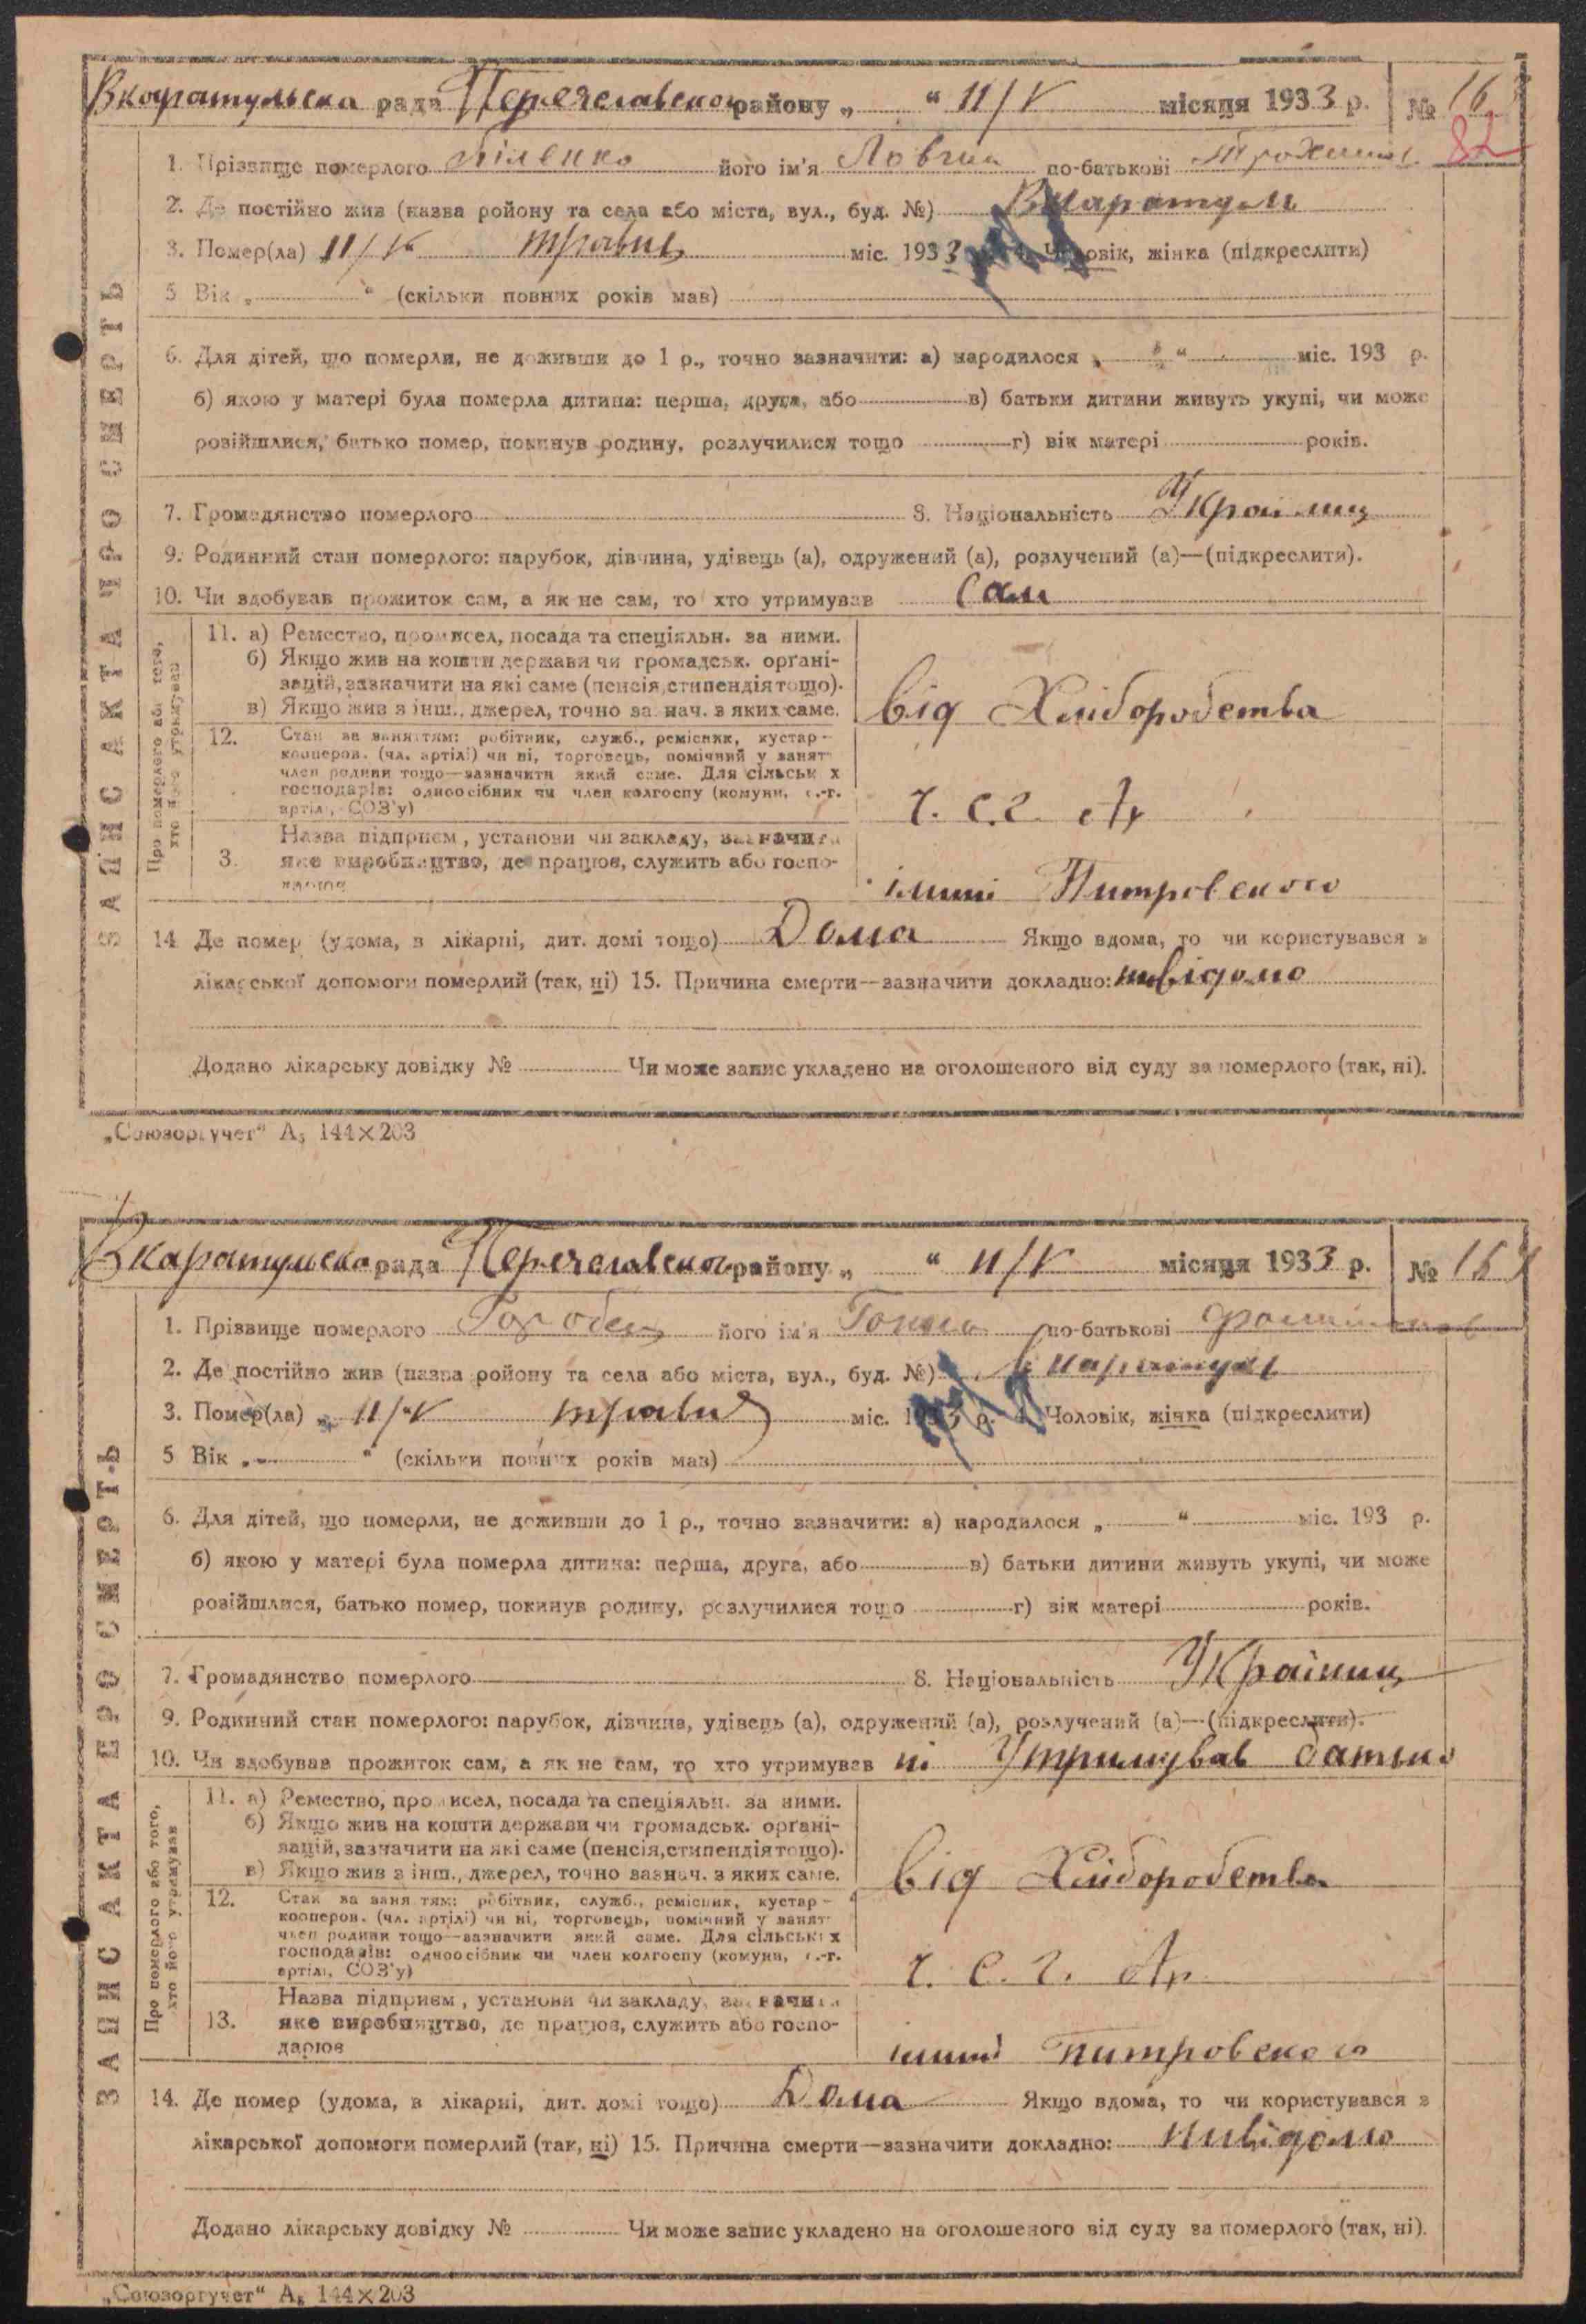 Вкаратульська рада Переяславского району „ “ 11/V місяця 1933 р. № 16
82
1. Прізвище померлого його ім'я по-батькові
2. Де постійно жив (назва ройону та села або міста, вул., буд. №) Вкаратуль
3. Помер(ла) „ 11/V травня міс. 1933 Чоловік, жінка (підкреслити)
5 Вік „ “ (скільки повних років мав)
6. Для дітей, що померли, не доживши до 1 р., точно зазначити: а) народилося „ “ міс. 193 р.
б) якою у матері була померла дитина: перша, друга, або в) батьки дитини живуть укупі, чи може
розійшлися, батько помер, покинув родину, розлучилися тощо г) вік матері років.
7. Громадянство померлого 8. Національність Україниц
9. Родинний стан померлого: парубок, дівчина, удівець (а), одружений (а), розлучений (а)—(підкреслити).
10. Чи здобував прожиток сам, а як не сам, то хто утримував Сам
ЗАПИС АКТА ПРО СМЕРТЬ
Про померлого або того, хто його утримував
11. а) Ремество, промисел, посада та спеціяльн. за ними.
б) Якщо жив на кошти держави чи громадськ. орґані-
зацій, зазначити на які саме (пенсія, стипендія тощо).
в) Якщо жив з інш., джерел, точно зазнач. з яких саме.
від Хліборобства
12. Стан за заняттям: робітник, служб., ремісник, кустар—
кооперов. (чл. артілі) чи ні, торговець, помічний у занят
член родини тощо—зазначити який саме. Для сільськ х
господарів: одноосібник чи член колгоспу (комуни, с.-г.
артілі, СОЗ'у)
ч. с.г. Ар
3. Назва підприєм , установи чи закладу, зазначити
яке виробництво, де працює, служить або госпо-
дарює
імині Питровского
14 Де помер (удома, в лікарні, дит. домі тощо) Дома Якщо вдома, то чи користувався з
лікарської допомоги померлий (так, ні) 15. Причина смерти—зазначити докладно: нивідомо
Додано лікарську довідку № Чи може запис укладено на оголошеного від суду за померлого (так, ні).
„Союзоргучет“ А₅ 144×203
Вкаратульска рада Переяславског району „ “ 11/V місяця 1933 р. № 164
1. Прізвище померлого Горобец його ім'я по-батькові
2. Де постійно жив (назва ройону та села або міста, вул., буд. №) Вкаратуль
3. Помер(ла) „ 11/V травня міс. 1933 р. Чоловік, жінка (підкреслити)
5 Вік „ “ (скільки повних років мав)
6. Для дітей, що померли, не доживши до 1 р., точно зазначити: а) народилося „ “ міс. 193 р.
б) якою у матері була померла дитина: перша, друга, або в) батьки дитини живуть укупі, чи може
розійшлися, батько помер, покинув родину, розлучилися тощо г) вік матері років.
7. Громадянство померлого 8. Національність Україниц
9. Родинний стан померлого: парубок, дівчина, удівець (а), одружений (а), розлучений (а)—(підкреслити).
10. Чи здобував прожиток сам, а як не сам, то хто утримував ні Утримував батько
ЗАПИС АКТА ПРО СМЕРТЬ
Про померлого або того, хто його утримував
11. а) Ремество, промисел, посада та спеціяльн. за ними.
б) Якщо жив на кошти держави чи громадськ. орґані-
зацій, зазначити на які саме (пенсія, стипендія тощо).
в) Якщо жив з інш., джерел, точно зазнач. з яких саме.
від Хліборобства
12. Стан за заняттям: робітник, служб., ремісник, кустар—
кооперов. (чл. артілі) чи ні, торговець, помічний у занят
член родини тощо—зазначити який саме. Для сільськ х
господарів: одноосібник чи член колгоспу (комуни, с.-г.
артілі, СОЗ'у)
ч. с. г. Ар
13. Назва підприєм , установи чи закладу, зазначити
яке виробництво, де працює, служить або госпо-
дарює
імині питровского
14. Де помер (удома, в лікарні, дит. домі тощо) Дома Якщо вдома, то чи користувався з
лікарської допомоги померлий (так, ні) 15. Причина смерти—зазначити докладно: нивідомо
Додано лікарську довідку № Чи може запис укладено на оголошеного від суду за померлого (так, ні).
„Союзоргучет“ А₅ 144×203